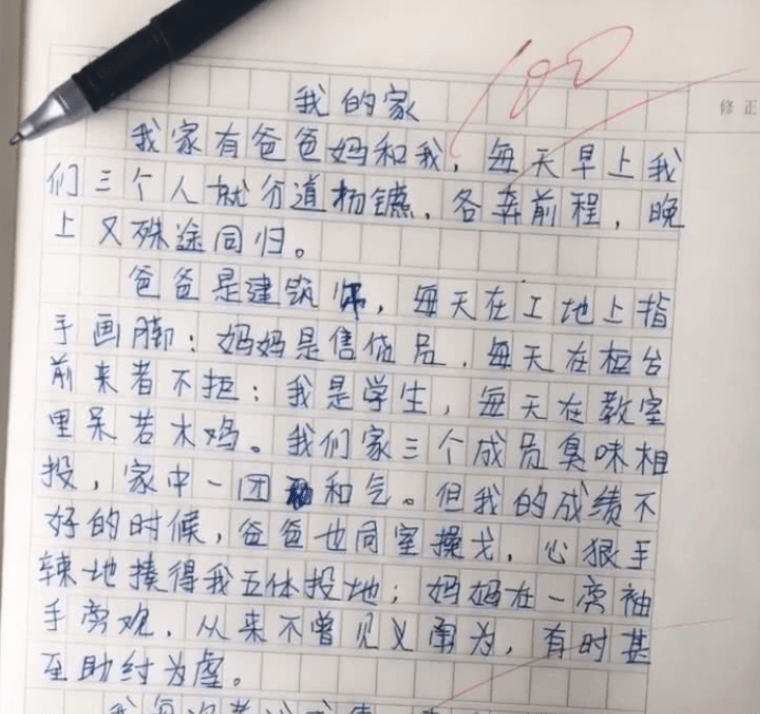 100
修正
我的家
我家有爸爸妈和我，每天早上我
们三个人就分道杨镳，各奔前程，晚
上又殊途同归。
爸爸是建筑师，每天在工地上指
手画脚；妈妈是售货员，每天在柜台
前来者不拒；我是学生，每天在教室
里呆若木鸡。我们家三个成员臭味相
投，家中一团和气。但我的成绩不
好的时候，爸爸也同室操戈，心狠手
辣地揍得我五体投地；妈妈在一旁袖
手旁观，从来不曾见义勇为，有时甚
至助纣为虐。